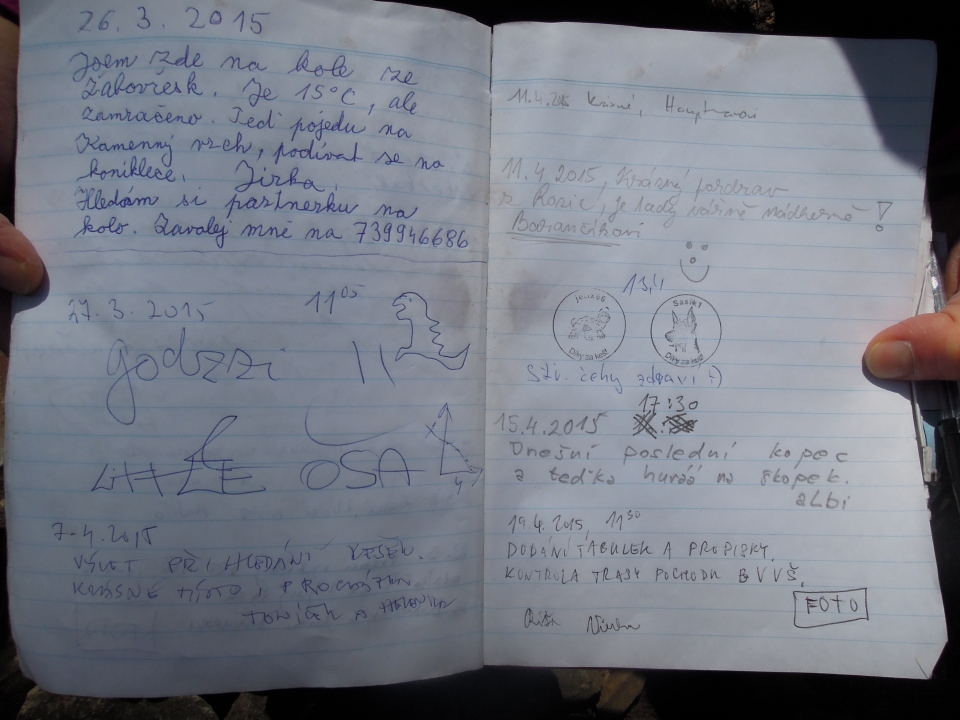 26.3. 2015
Jsem zde na kole ze
Žabovřesk. Je 15°C, ale
zamračeno. Teď pojedu na
Kamenný vrch, podívat se na
koniklece. Jirka.
Hledám si partnerku na
kolo. Zavolej mně na 739946686
27.3. 2015 11 05
godzzi
OSA
7.4.2015
VÝLET PŘI HLEDÁNÍ KEŠEK.
KRÁSNÉ MÍSTO, PROCHÁZKA
TONIČEK A
11.4.2015
11.4 2015, Krásný pozdrav
z Rosic, je tady vážně nádherně!
13.4
Díky za keš!
Saxik1
Díky za keš!
Sev. čechy zdraví :)
17:30
15.4.2015
Dnešní poslední kopec
a teďka huráá na škopek.
albi
19.4. 2015, 11 30
DODÁNÍ TABULEK A PROPISKY.
KONTROLA TRASY POCHODU BVVŠ.
FOTO